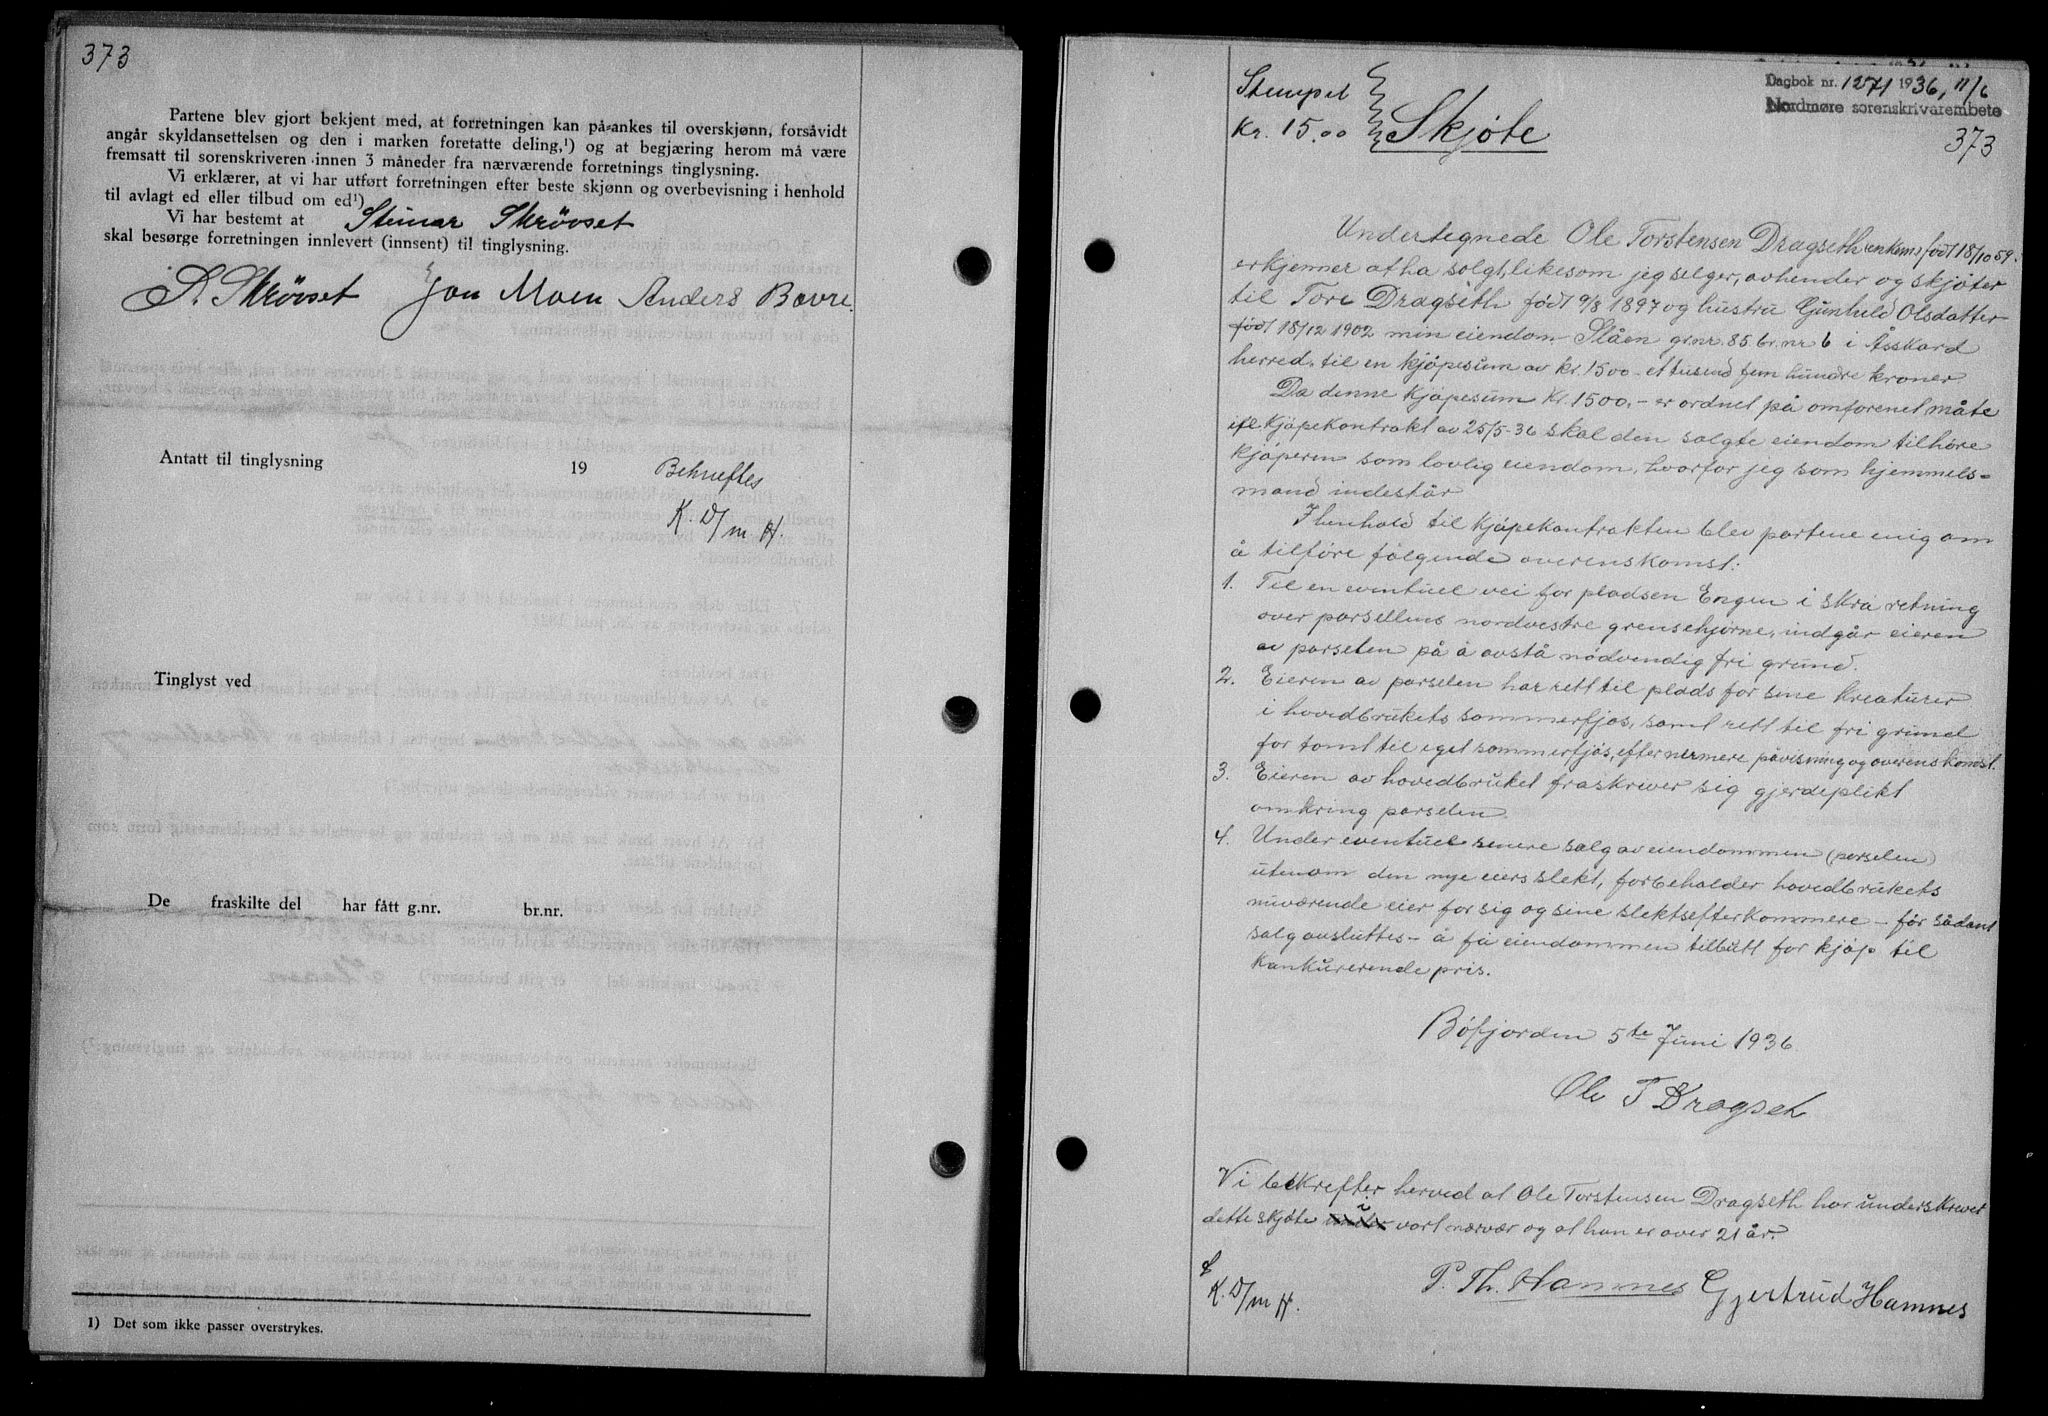 373
Partene blev gjort bekjent med, at forretningen kan på-ankes til overskjønn, forsåvidt
angår skyldansettelsen og den i marken foretatte deling,¹) og at begjæring herom må være
fremsatt til sorenskriveren innen 3 måneder fra nærværende forretnings tinglysning.
Vi erklærer, at vi har utført forretningen efter beste skjønn og overbevisning i henhold
til avlagt ed eller tilbud om ed¹)
Vi har bestemt at Steinar Skrövset
skal besørge forretningen innlevert (innsent) til tinglysning.
S. Skrövset Jon Moen Anders Bævre.
Antatt til tinglysning 19
Bekreftes
K. D/m H.
Tinglyst ved
De fraskilte del har fått g.nr. br.nr.
1) Det som ikke passer overstrykes.
Stempel
Kr. 15.00
Skjøte
Dagbok nr. 1271 1936, 11/6
Nordmøre sorenskrivarembete
373
Undertegnede Ole Torstensen Dragseth enkem. født 18/10 59.
erkjenner at ha solgt, likesom jeg selger, avhender og skjøter
til Tore Dragseth født 9/8 1897 og hustru Gunhild Olsdatter
født 18/12 1902 min eiendom Slåen gr.nr. 85 br.nr 6 i Åsskard
herred, til en kjøpesum av kr. 1500 - ettusend fem hundre kroner.
Da denne kjøpesum Kr. 1500,- er ordnet på omforenet måte
ifl. kjøpekontrakt av 25/5-36 skal den solgte eiendom tilhøre
kjøperen som lovlig eiendom, hvorfor jeg som hjemmels-
mand indestår
I henhold til kjøpekontrakten blev partene enig om
å tilføre følgende overenskomst:
1. Til en eventuel vei for pladsen Engen i skrå retning
over parsellens nordvestre grensehjørne, indgår eieren
av parselen på å avstå nødvendig fri grund.
2. Eieren av parselen har rett til plads for sine kreaturer
i hovedbrukets sommerfjøs, samt rett til fri grund
for tomt til eget sommerfjøs, efter nermere påvisning og overenskomst.
3. Eieren av hovedbruket fraskriver sig gjerdeplikt
omkring parselen.
4. Under eventuel senere salg av eiendommen (parselen)
utenom den nye eiers slekt, forbeholder hovedbrukets
nuværende eier for sig og sine slektsefterkommere - før sådant
salg avsluttes - å få eiendommen tilbutt for kjøp til
konkurerende pris.
Bøfjorden 5te Juni 1936
Ole T Dragset
Vi bekrefter herved at Ole Torstensen Dragseth har underskrevet
dette skjøte i vort nærvær og at han er over 21 år.
K. D/m H.
P. Th. Hamnes Gjertrud Hamnes